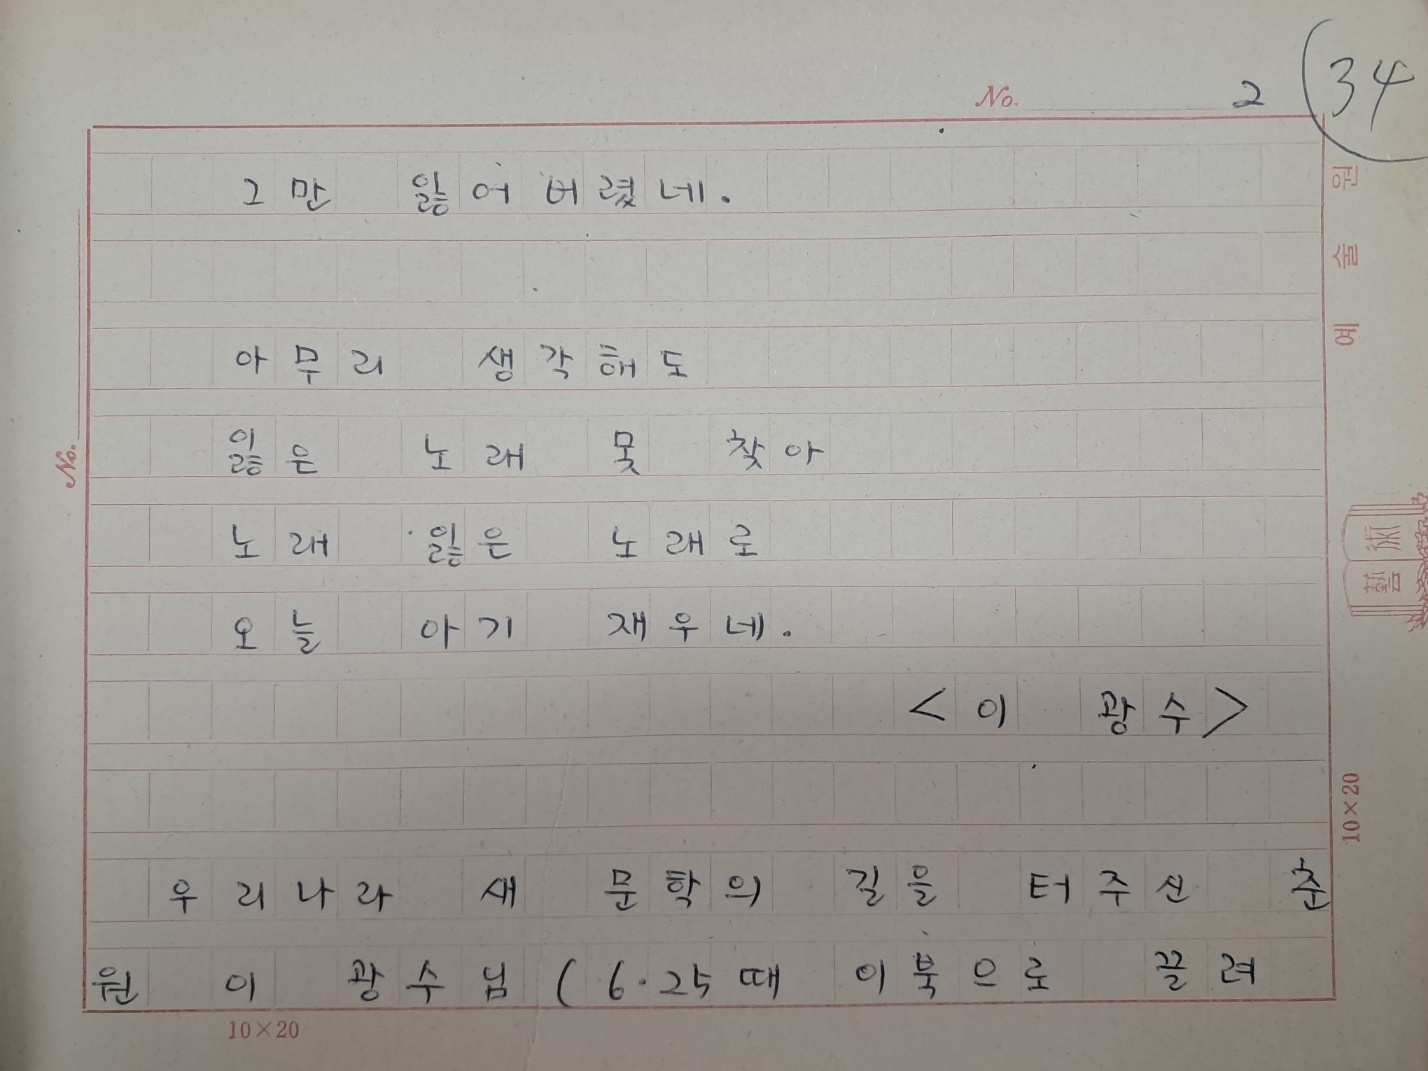 No. 2
34
그만 잃어버렸네.
아무리 생각해도
잃은 노래 못 찾아
노래 잃은 노래로
오늘 아기 재우네.
<이 광수>
우리나라 새 문학의 길을 터주신 춘
원 이 광수님 (6·25때 이북으로 끌려
10×20
No.
예술원
藝術
10×20